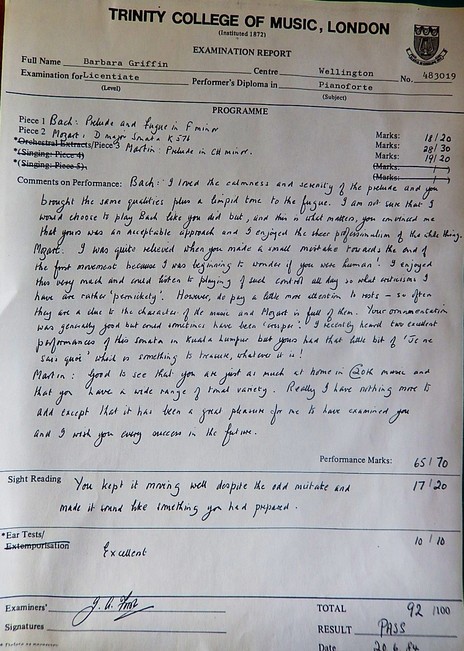 TRINITY COLLEGE OF MUSIC, LONDON
(Instituted 1872)
EXAMINATION REPORT
Full Name Barbara Griffin Centre Wellington No. 483019
Examination for Licentiate Performer's Diploma in Pianoforte
(Level) (Subject)
PROGRAMME
Piece 1 Bach: Prelude and fugue in F minor Marks: 18/20
Piece 2 Mozart: D major Sonata K 576 Marks: 28/30
*Orchestral Extracts/Piece 3 Martin: Prelude in C# minor. Marks: 19/20
*(Singing: Piece 4) (Marks: )
*(Singing: Piece 5) (Marks: )
Comments on Performance: Bach: I loved the calmness and serenity of the prelude and you
brought the same qualities plus a limpid tone to the fugue. I am not sure that I
would choose to play Bach like you did but, and this is what matters, you convinced me
that yours was an acceptable approach and I enjoyed the sheer professionalism of the whole thing.
Mozart: I was quite relieved when you made a small mistake towards the end of
the first movement because I was beginning to wonder if you were human! I enjoyed
this very much and could listen to playing of such control all day so what criticisms I
have are rather 'pernickety'. However, do pay a little more attention to rests – so often
they are a clue to the character of the music and Mozart is full of them. Your ornamentation
was generally good but could sometimes have been 'crisper'. I recently heard two excellent
performances of this sonata in Kuala Lumpur but yours had that little bit of 'Je ne
sais quoi' which is something to treasure, whatever it is!
Martin: Good to see that you are just as much at home in 20th music and
that you have a wide range of tonal variety. Really I have nothing more to
add except that it has been a great pleasure for me to have examined you
and I wish you every success in the future.
Performance Marks: 65/70
Sight Reading You kept it moving well despite the odd mistake and 17/20
made it sound like something you had prepared.
*Ear Tests/ 10/10
Extemporisation Excellent
Examiners'
Signatures
TOTAL 92 /100
RESULT PASS
Date 20.6.84
* Delete as necessary